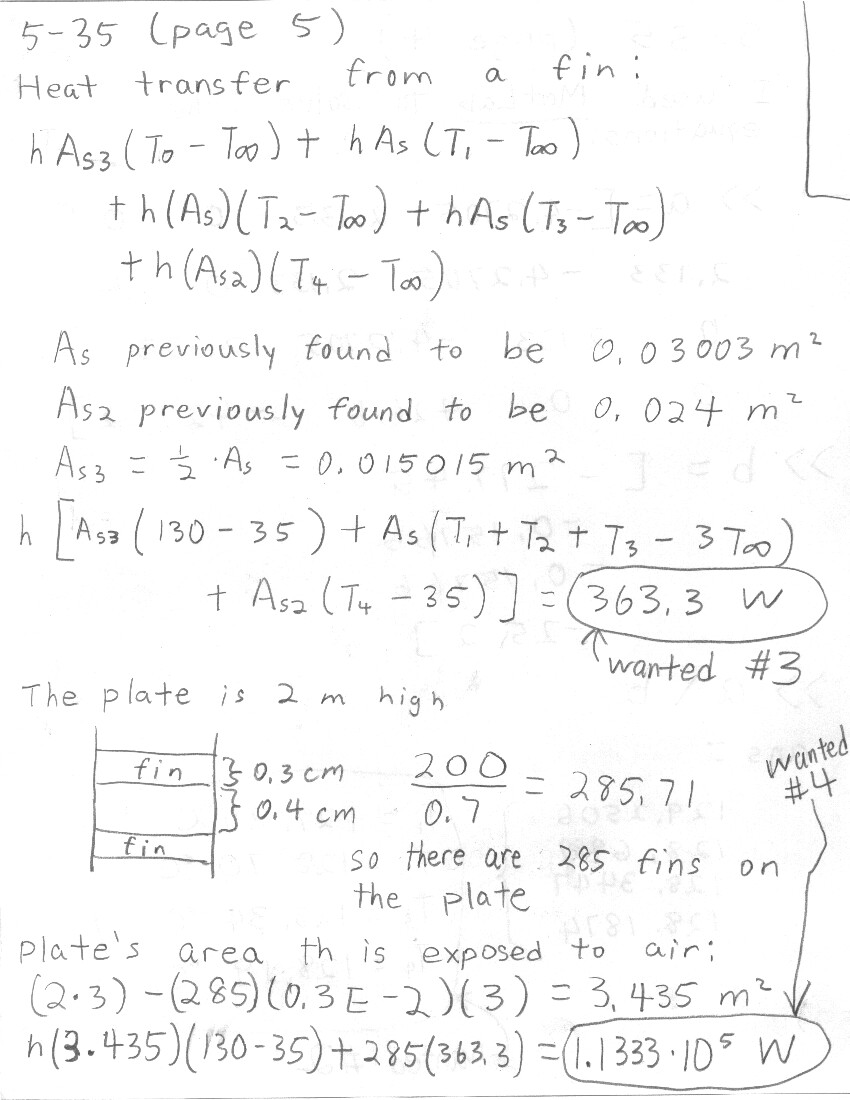 5-35 (page 5)
Heat transfer from a fin:
hAs3(T0 - T∞) + hAs(T1 - T∞)
+ h(As)(T2 - T∞) + hAs(T3 - T∞)
+ h(As2)(T4 - T∞)
As previously found to be 0.03003 m²
As2 previously found to be 0.024 m²
As3 = 1/2 · As = 0.015015 m²
h[As3(130 - 35) + As(T1 + T2 + T3 - 3T∞)
+ As2(T4 - 35)] = 363.3 W
wanted #3
The plate is 2 m high
wanted #4
fin } 0.3 cm
} 0.4 cm
fin
200/0.7 = 285.71
so there are 285 fins on
the plate
plate's area th is exposed to air:
(2·3) - (285)(0.3E-2)(3) = 3.435 m²
h(3.435)(130-35) + 285(363.3) = 1.1333·10⁵ W